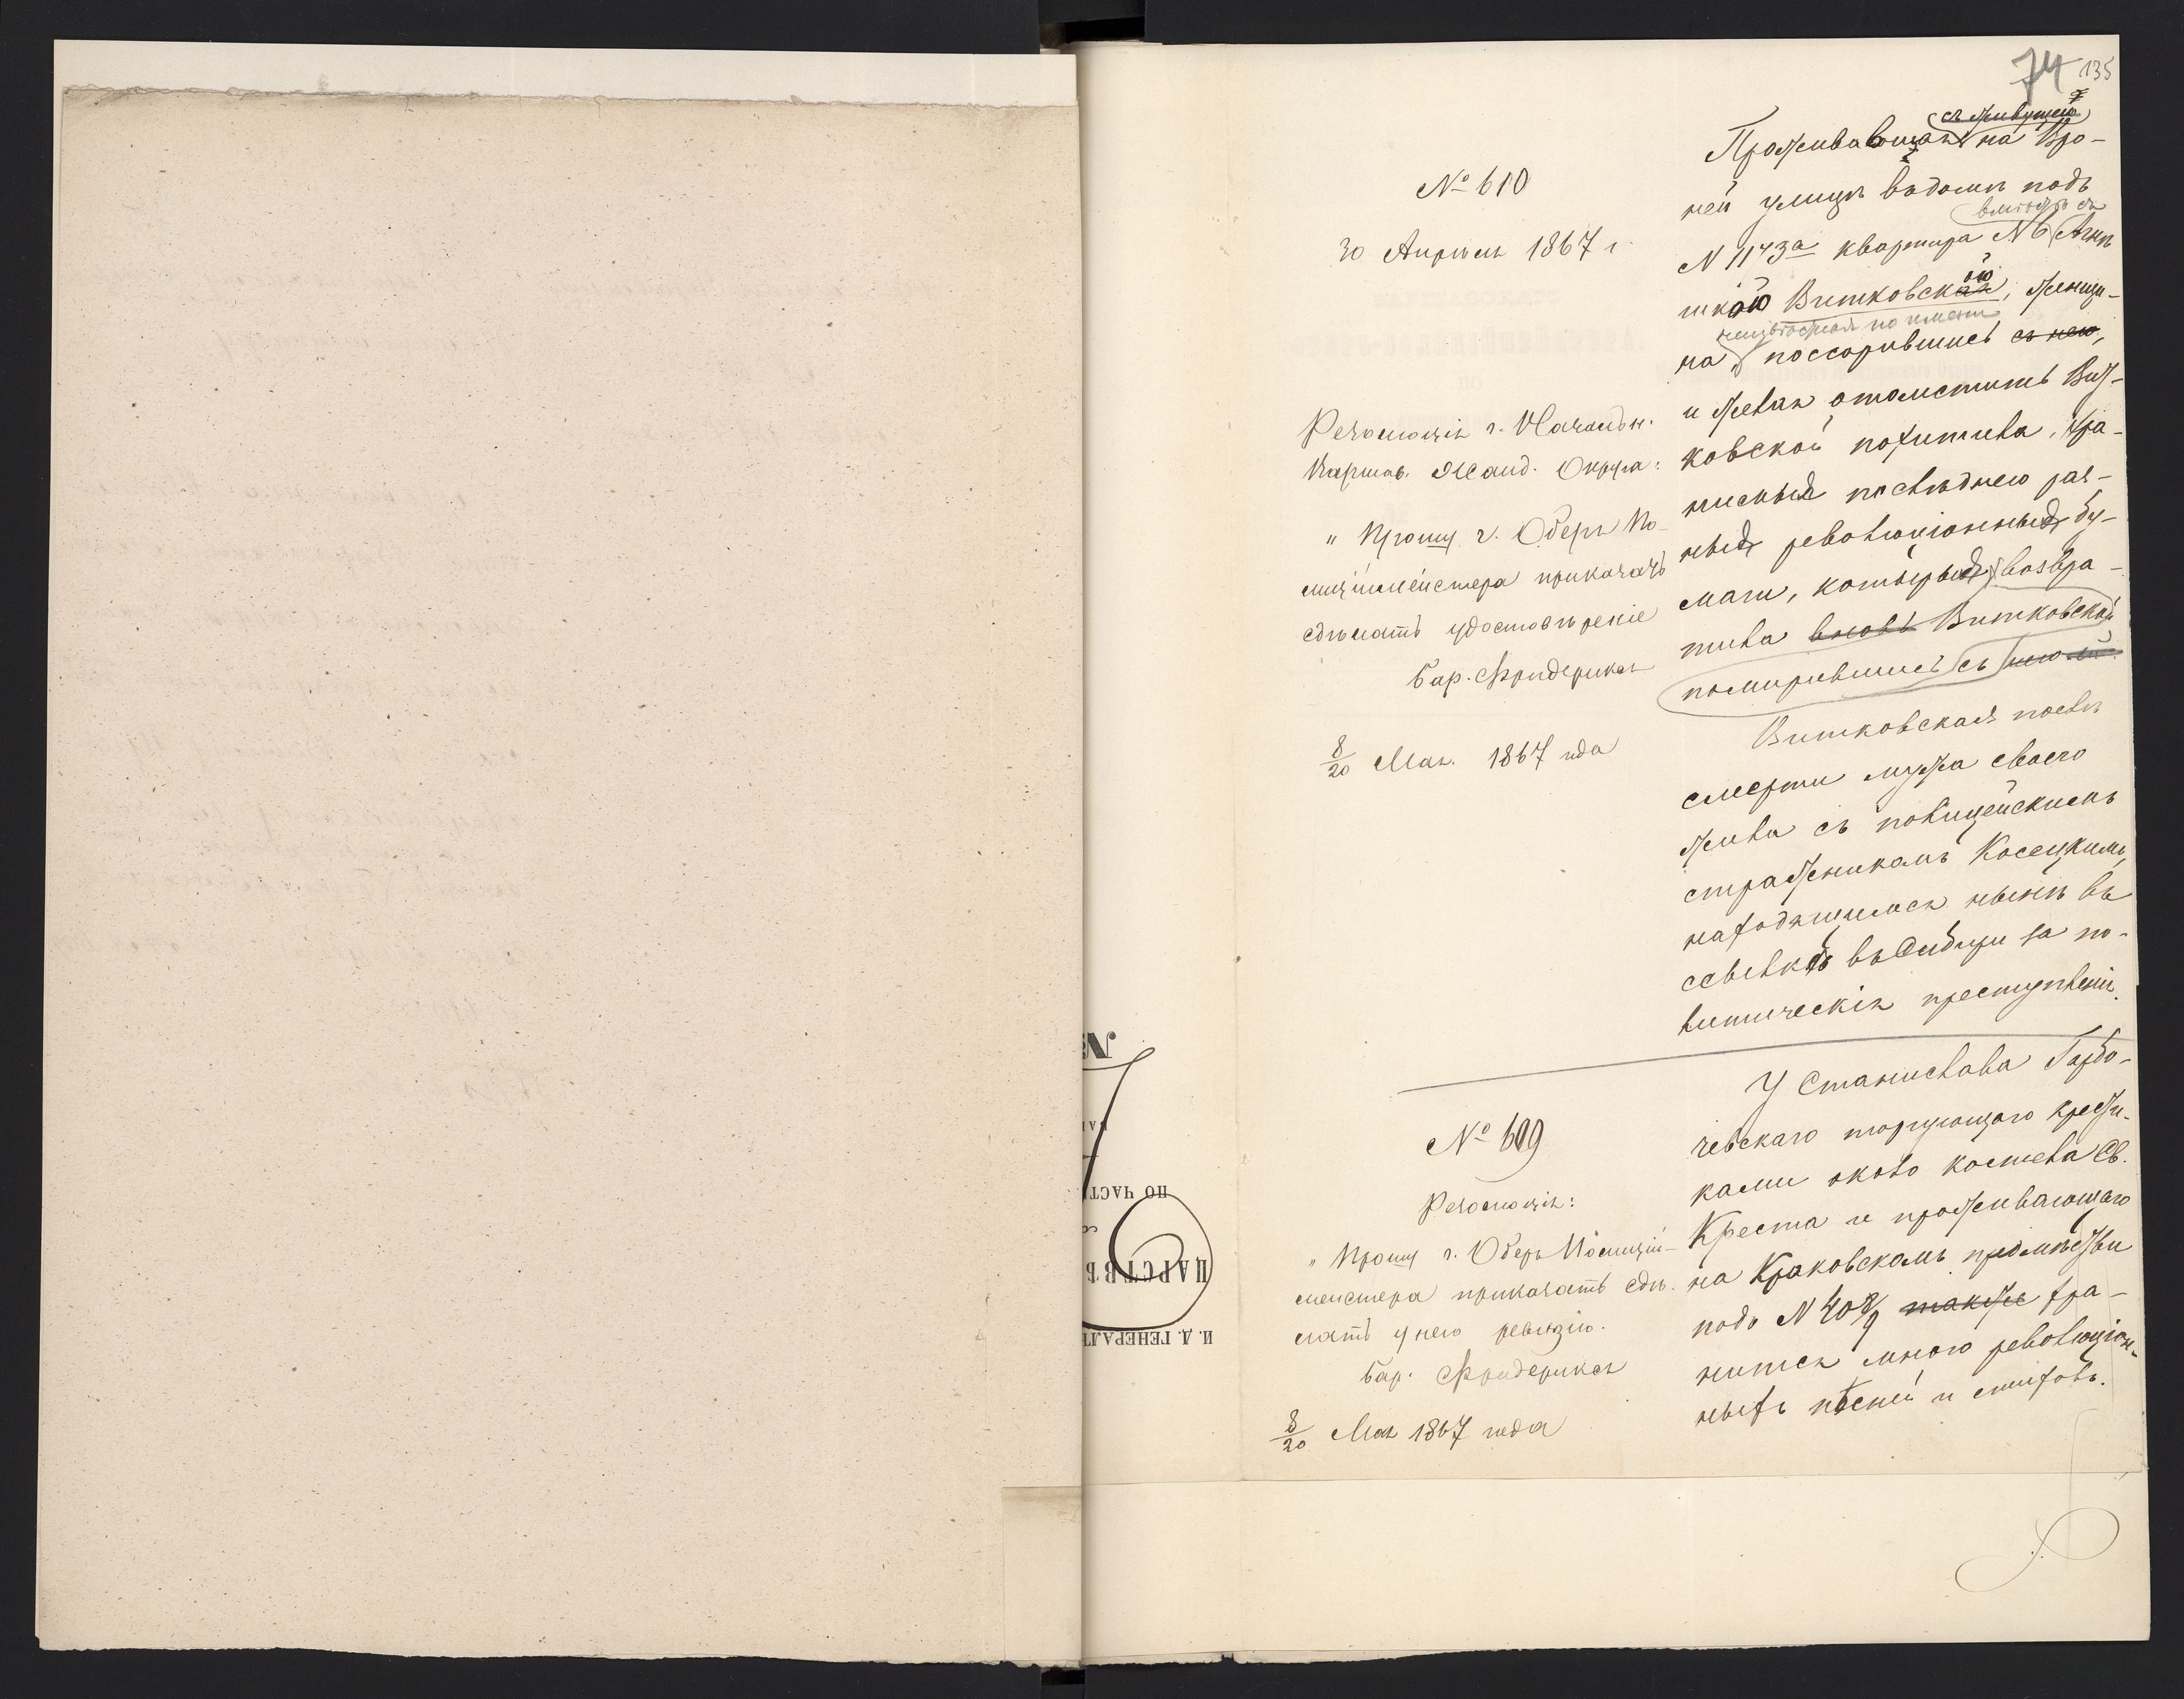 74 135
№ 610
30 Апрѣля 1867 г.
Резолюція г. Начальн.
Варшав. Жанд. Округа:
"Прошу г. Оберъ По-
лиціймейстера приказать
сдѣлать удостовѣреніе
Бар. Фридериксъ
8/20 Мая. 1867 года
съ живущей
Проживающая на Бро-
ней улицѣ въ домѣ подъ
вмѣстѣ съ
N 1143а квартира N 6
шкою Витковскою, женщи-
неизвѣстная по имени
на поссорившись съ нею,
и желая отомстить Вит-
ковской похитила, хра-
нисныя послѣднею раз-
ныя революціонныя бу-
маги, которыя возвра-
тила вновь Витковской
помирившись съ нею
Витковская послѣ
смерти мужа своего
жила съ полицейскимъ
стражникомъ Косецкимъ,
находящимся нынѣ въ
ссылкѣ въ Сибири за по-
литическія преступленія.
№ 609
Резолюція:
"Прошу г. Оберъ Полицій-
мейстера приказать сдѣ-
лать у него ревизію.
Бар. Фридериксъ
8/20 Мая 1867 года
У Станислава Гарбо-
чевскаго торгующаго крести-
ками около костела Св.
Креста и проживающаго
на Краковскомъ предмѣстьи
подъ N 408/9 также хра-
нится много революціон-
ныхъ пѣсни и стиховъ.
№
ПО ЧАСТИ
ЦАРСТВѢ
И. Д. ГЕНЕРАЛЪ